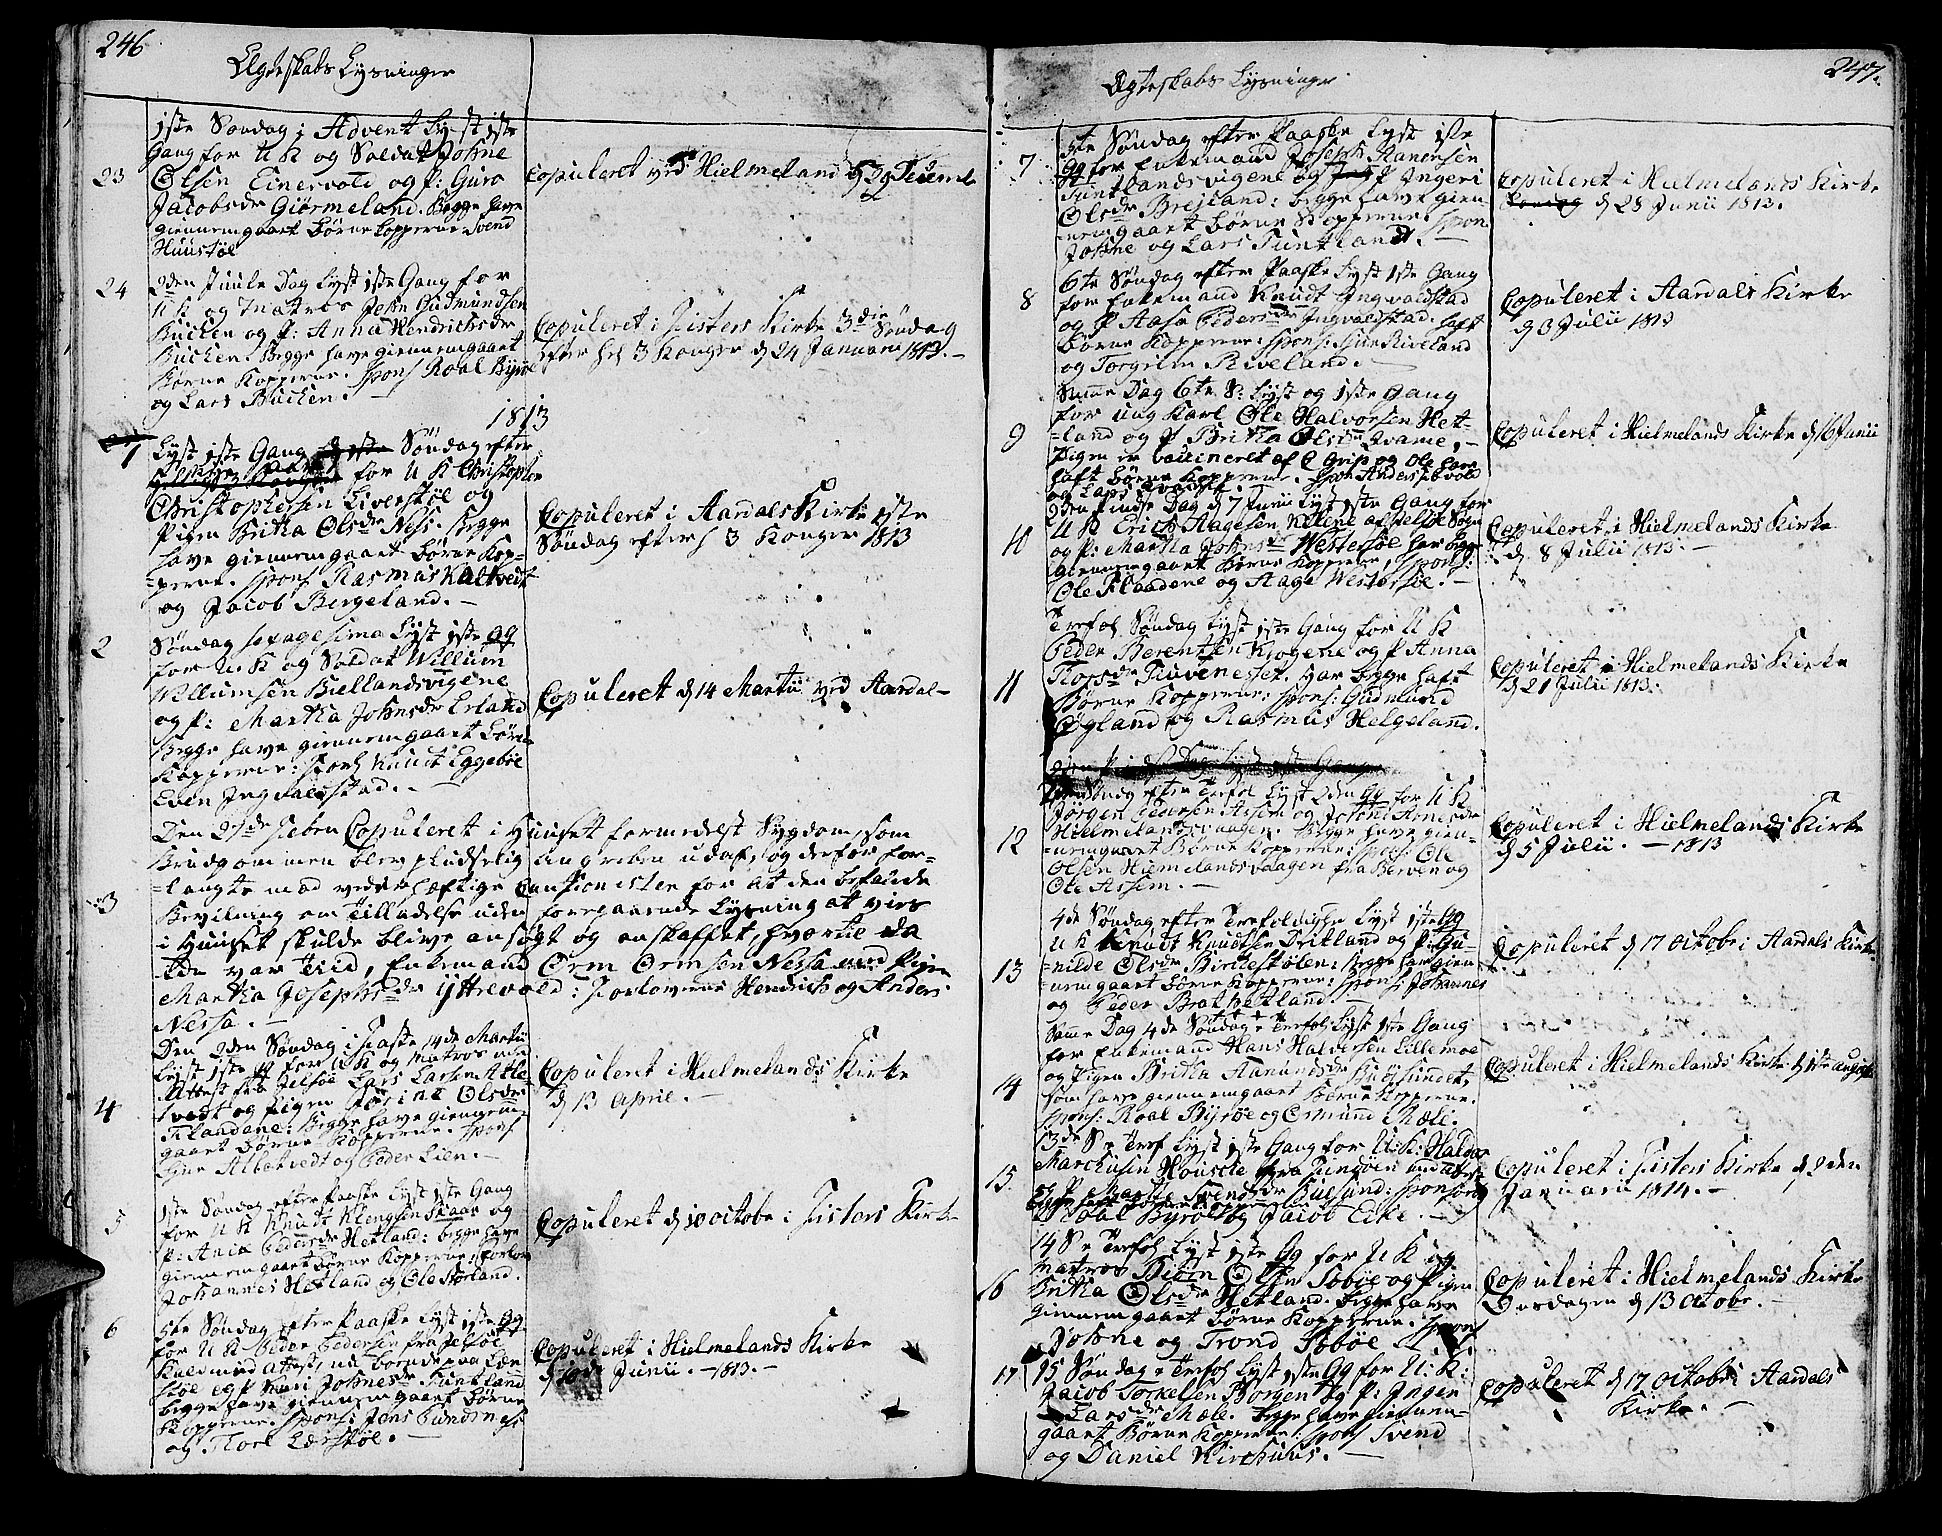 246
Ægteskabs Lysninger
23
1ste Søndag i Advent Lyst 1ste
Gang for U K og Soldat Johne
Olsen Einervold og P: Guro
Jacobsdr Giørmeland. Begge have
giennemgaaet Børne Kopperne Svend
Huustøl
Copuleret ved Hielmeland
24
2den Juule Dag Lyst 1ste Gang for
U K og Matros John Gudmundsen
Buchen og P: Anna Hendrichsdr
Buchen. Begge have giennemgaaet
Børne Kopperne. Spons Roal Byrøe
og Lars Buchen. —
Copuleret i Fisters Kirke 3die Søndag
efter hel 3 Konger d 24 Januari 1813. —
1813
1
Lyst 1ste Gang Søndag efter
for U K Christopher
Christophersen Liverstøl og
Pigen Britha Olsdr Ness. Begge
have giennemgaaet Børne Kop-
=perne. Spons Rasmus Kaltvedt
og Jacob Bergeland. —
Copuleret i Aardals Kirke 1ste
Søndag efter h 3 Konger 1813
2
Søndag sexagesima Lyst 1ste Gg
for U. K og Soldat Willum
Willumsen Kiellandsvigene
og P: Martha Johnsdr Erland
Begge have giennemgaaet Børne
Kopperne: Knudt Eggebøe
Even Ingvaldstad. —
Copuleret d 14 Martii ved Aardal —
3
Den Febru Copuleret i Huuset formedelst Sygdom, som
Brudgommen blev pludselig angreben udaf, og derfor for=
=langte mod vederhæftige Cautionister for at den befalede
Bevilning om Tilladelse uden foregaaende Lysning at vies
i Huuset skulde blive ansøgt og anskaffet, hvortil da
ide var Tiid, Enkemand Orm Ormsen Nessa med Pigen
Martha Josephsdr Yttrevold: Forloverne Hendrich og Anders
Nessa. —
4
Den 2den Søndag i Faste 14de Martii
Lyst 1ste for U K og Matros med
Attest fra Jelsøe Lars Larsen Atle
tvedt og Pigen Jorine Olsdr
Flandene: Begge have giennem
gaaet Børne Kopperne. Spons
Albetvedt og Peder Lien. —
Copuleret i Hielmelands Kirke
d 13 April. —
5
1ste Søndag efter Paaske Lyst 1ste Gang
for U K Knudt Klengsen Skaar og
P: Pedersdr Hetland: begge have
giennemgaaet Børne Kopperne: Forlov
Johannes Hetland og Ole Sørland.
Copuleret d 10 octobr i Fisters Kirke
6
5te Søndag efter Paaske Lyst 1ste Gg
for U K Peder Pedersen fra Jelsøe
med attest, nu boende paa Lær
støl og P Kari Johnesdr Funtland
begge have giennemgaaet Børne
Kopperne. Spons: Jens
og Thore Lærstøl. —
Copuleret i Hielmelands Kirke
Junii. — 1813. —
247.
Ægteskabs Lysninger
7
5te Søndag efter Paaske Lyst 1ste
Gg for Enkemand Joseph Aanensen
Funtlandsvigene og P Ingeri
Olsdr Brejland: begge have gien-
nemgaaet Børne Kopperne. Spon
Johne og Lars Funtland. —
Copuleret i Hielmelands Kirke
d 28 Junii 1813.
8
6te Søndag efter Paaske Lyst 1ste Gang
for Enkemand Knudt Ingvaldstad
og P Aasa Pedersdr Ingvaldstad. haft
Børne Kopperne: Spons: Riveland
og Torgrim Riveland. —
Copuleret i Aardals Kirke
d 3 Julii 1813
9
Samme Dag 6te S: Lyst og 1ste Gang
for ung Karl Ole Halvorsen Het-
=land og P Britha Olsdr Qvame, —
Pigen er vaccineret af C Grip og Ole have
haft Børne Kopperne. Spon Anders
og Lars
Copuleret i Hielmelands Kirke d 16 Junii
10
2den Pindse Dag d 7 Junii Lyst 1ste Gang for
U K Erich Aagesen af Jelsøe Sogn
og P: Martha Johnsdr Westersøe har begge
giennemgaaet Børne Kopperne, Spons:
Ole Flaadene og Aage Westersøe. —
Copuleret i Hielmelands Kirke
d. 8 Julii 1813. —
11
Trefol Søndag Lyst 1ste Gang for U K
Peder Berentsen og P Anna
Thopsdr Tuvenesset, Har begge haft
Børne Kopperne: Spons: Gudmund
Øgland og Rasmus Helgeland.
Copuleret i Hielmelands Kirke
d 21 Julii 1813.
12
efter Trefol Lyst 2den Gg for U K
Jørgen Pedersen Assem og Arnesdr
Hielmelandsvaagen. Begge have gien-
=nemgaaet Børne Kopperne: Spons: Ole
Olsen Hielmelandsvaagen fra Berven og
Ole Assem. —
Copuleret i Hielmelands Kirke
d 5 Julii. — 1813
13
4de Søndag efter Trefoldighn Lyst 1ste Gg
U K Knudt Knudtsen Tritland og P: Gu-
=nilde Olsdr Birchestølen: Begge har gien
=nemgaaet Børne Kopperne: Spons: Johannes
og Peder Brathetland. —
Copuleret d 17 octobr i Aardals Kirke
14
Samme Dag 4de Søndag e Trefol Lyst 1ste Gang
for Enkemand Hans Halversen Lillemoe
og Pigen Britha Aamundsdr
som have giennemgaaet Børne Kopperne.
Spons: Roal Byrøe og Ormund Mæle.
Copuleret i Hielmelands Kirke d 1ste august
15
13de S e Tref Lyst 1ste Gang for U: K: Haldor
Marchusen fra Findøen med attest
og P Martha Svendsdr Buesund: Sponsorer
Roal Byrøe og Jacob Eike. —
Copuleret i Fisters Kirke d 2den
Januarii 1814. —
16
14 S e Trefol Lyst 1ste Gg for U K og
Matros Biørn Olsen Sebøe og Pigen
Britha Olsdr Hetland. Begge have
giennemgaaet Børne Kopperne. Spons
Johne og Trond Sebøe
Copuleret i Hielmelands Kirke
Onsdagen d 13 octobr. —
17
15 Søndag e Trefol Lyst 1ste Gg for U: K:
Jacob Torkelsen Borgen og P: Inger
Larsdr Mæle. Begge have giennem-
gaaet Børne Kopperne: Spons Svend
og Daniel Kirchuus. —
Copuleret d 17 octobr i Aardals
Kirke. —